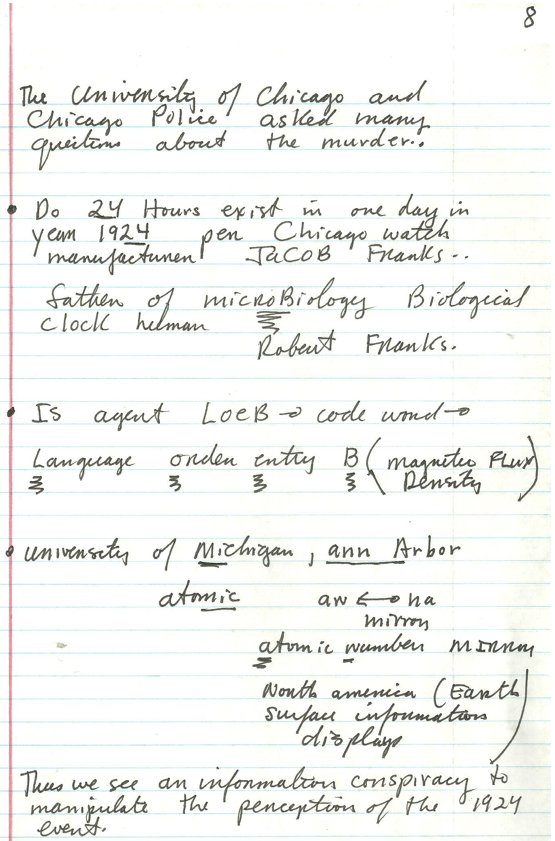 8
The University of Chicago and
Chicago Police asked many
questions about the murder..
• Do 24 Hours exist in one day in
year 1924 per Chicago watch
manufacturer JACOB Franks..
father of microBiology Biological
clock human
Robert Franks.
• Is agent LOEB → code word →
Language order entry B (magnetic Flux
Density)
• university of Michigan, ann Arbor
atomic an ↔ na
mirror
atomic number MIRROR
North america (Earth
surface information
displays)
Thus we see an information conspiracy to
manipulate the perception of the 1924
event.